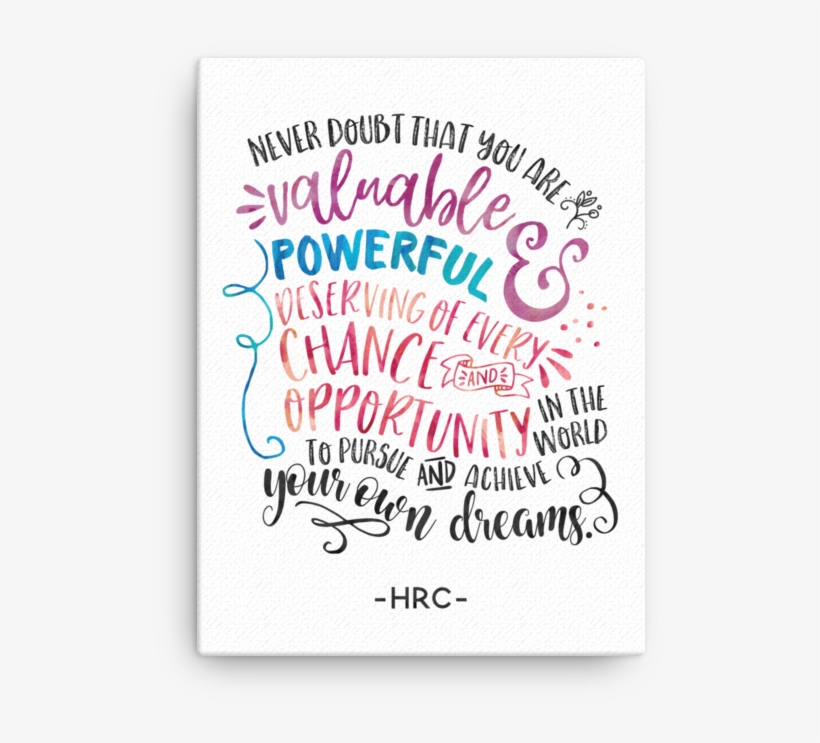 NEVER DOUBT THAT YOU ARE
valuable
POWERFUL &
DESERVING OF EVERY
CHANCE AND
OPPORTUNITY IN THE
WORLD
TO PURSUE AND ACHIEVE
your own dreams.
-HRC-